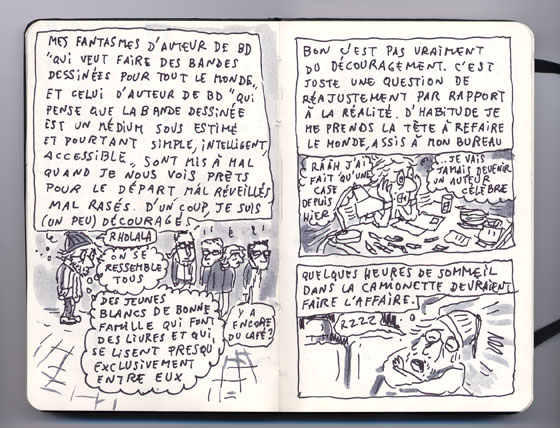 MES FANTASMES D'AUTEUR DE BD
"QUI VEUT FAIRE DES BANDES
DESSINÉES POUR TOUT LE MONDE„
ET CELUI D'AUTEUR DE BD "QUI
PENSE QUE LA BANDE DESSINÉE
EST UN MÉDIUM SOUS ESTIMÉ
ET POURTANT SIMPLE, INTELLIGENT,
ACCESSIBLE„ SONT MIS À MAL
QUAND JE NOUS VOIS, PRÊTS
POUR LE DÉPART MAL RÉVEILLÉS
MAL RASÉS. D'UN COUP, JE SUIS
(UN PEU) DÉCOURAGÉ.
RHOLALA
ON SE
RESSEMBLE
TOUS
DES JEUNES
BLANCS DE BONNE
FAMILLE QUI FONT
DES LIVRES ET QUI
SE LISENT PRESQU
EXCLUSIVEMENT
ENTRE EUX
Y A
ENCORE
DU CAFÉ?
BON C'EST PAS VRAIMENT
DU DÉCOURAGEMENT. C'EST
JUSTE UNE QUESTION DE
RÉAJUSTEMENT PAR RAPPORT
À LA RÉALITÉ. D'HABITUDE JE
ME PRENDS LA TÊTE À REFAIRE
LE MONDE, ASSIS À MON BUREAU
RÂÂH J'AI
FAIT QU'UNE
CASE
DEPUIS
HIER
...JE VAIS
JAMAIS DEVENIR
UN AUTEUR
CÉLÈBRE
QUELQUES HEURES DE SOMMEIL
DANS LA CAMIONETTE DEVRAIENT
FAIRE L'AFFAIRE.
RZZZ